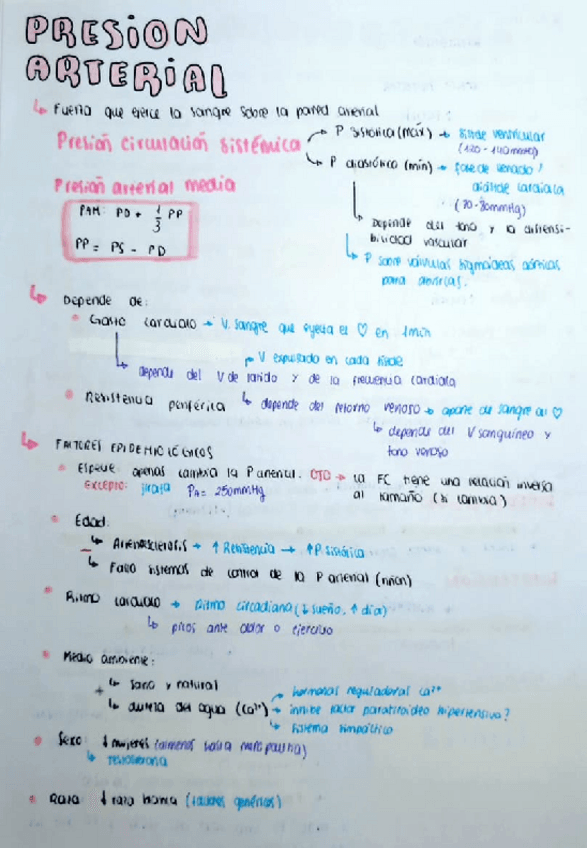 PRESION
ARTERIAL
↳ Fuerza que ejerce la sangre sobre la pared arterial
Presión circulación sistémica → P sistólica (máx) → sístole ventricular
(120 - 140 mmHg)
↳ P diastólica (mín) → fase de
diástole cardiaca
(70 - 80 mmHg)
Presión arterial media
PAM: PD + 1/3 PP
PP = PS - PD
↳ Depende del tono y la distensi-
bilidad vascular
↳ P sobre válvulas sigmoideas aórticas
para abrirlas.
↳ Depende de:
• Gasto cardiaco → V. sangre que eyecta el ♡ en 1 min
→ V expulsado en cada
↳ depende del V de latido y de la frecuencia cardiaca
• Resistencia periférica ↳ depende del retorno venoso → aporte de sangre al ♡
↳ depende del V sanguíneo y
tono venoso
↳ FACTORES EPIDEMIOLÓGICOS
• Especie: apenas cambia la P arterial. OJO → la FC tiene una relación inversa
EXCEPTO: jirafa PA = 250 mmHg al tamaño (sí cambia)
• Edad:
↳ Arteriosclerosis → ↑ Resistencia → ↑ P. sistólica
↳ Fallo sistemas de control de la P arterial (riñón)
• Ritmo cardiaco → Ritmo circadiana (↓ sueño, ↑ día)
↳ picos ante dolor o ejercicio
• Medio ambiente:
↳ sano y natural
+ ↳ dureza del agua (Ca²⁺) → hormonas reguladoras Ca²⁺
→ inhibe factor paratiroideo hipertensivo?
↳ sistema simpático
• Sexo: ↓ mujeres (al menos hasta menopausia)
↳ testosterona
• Raza: ↓ raza blanca (factores genéticos)